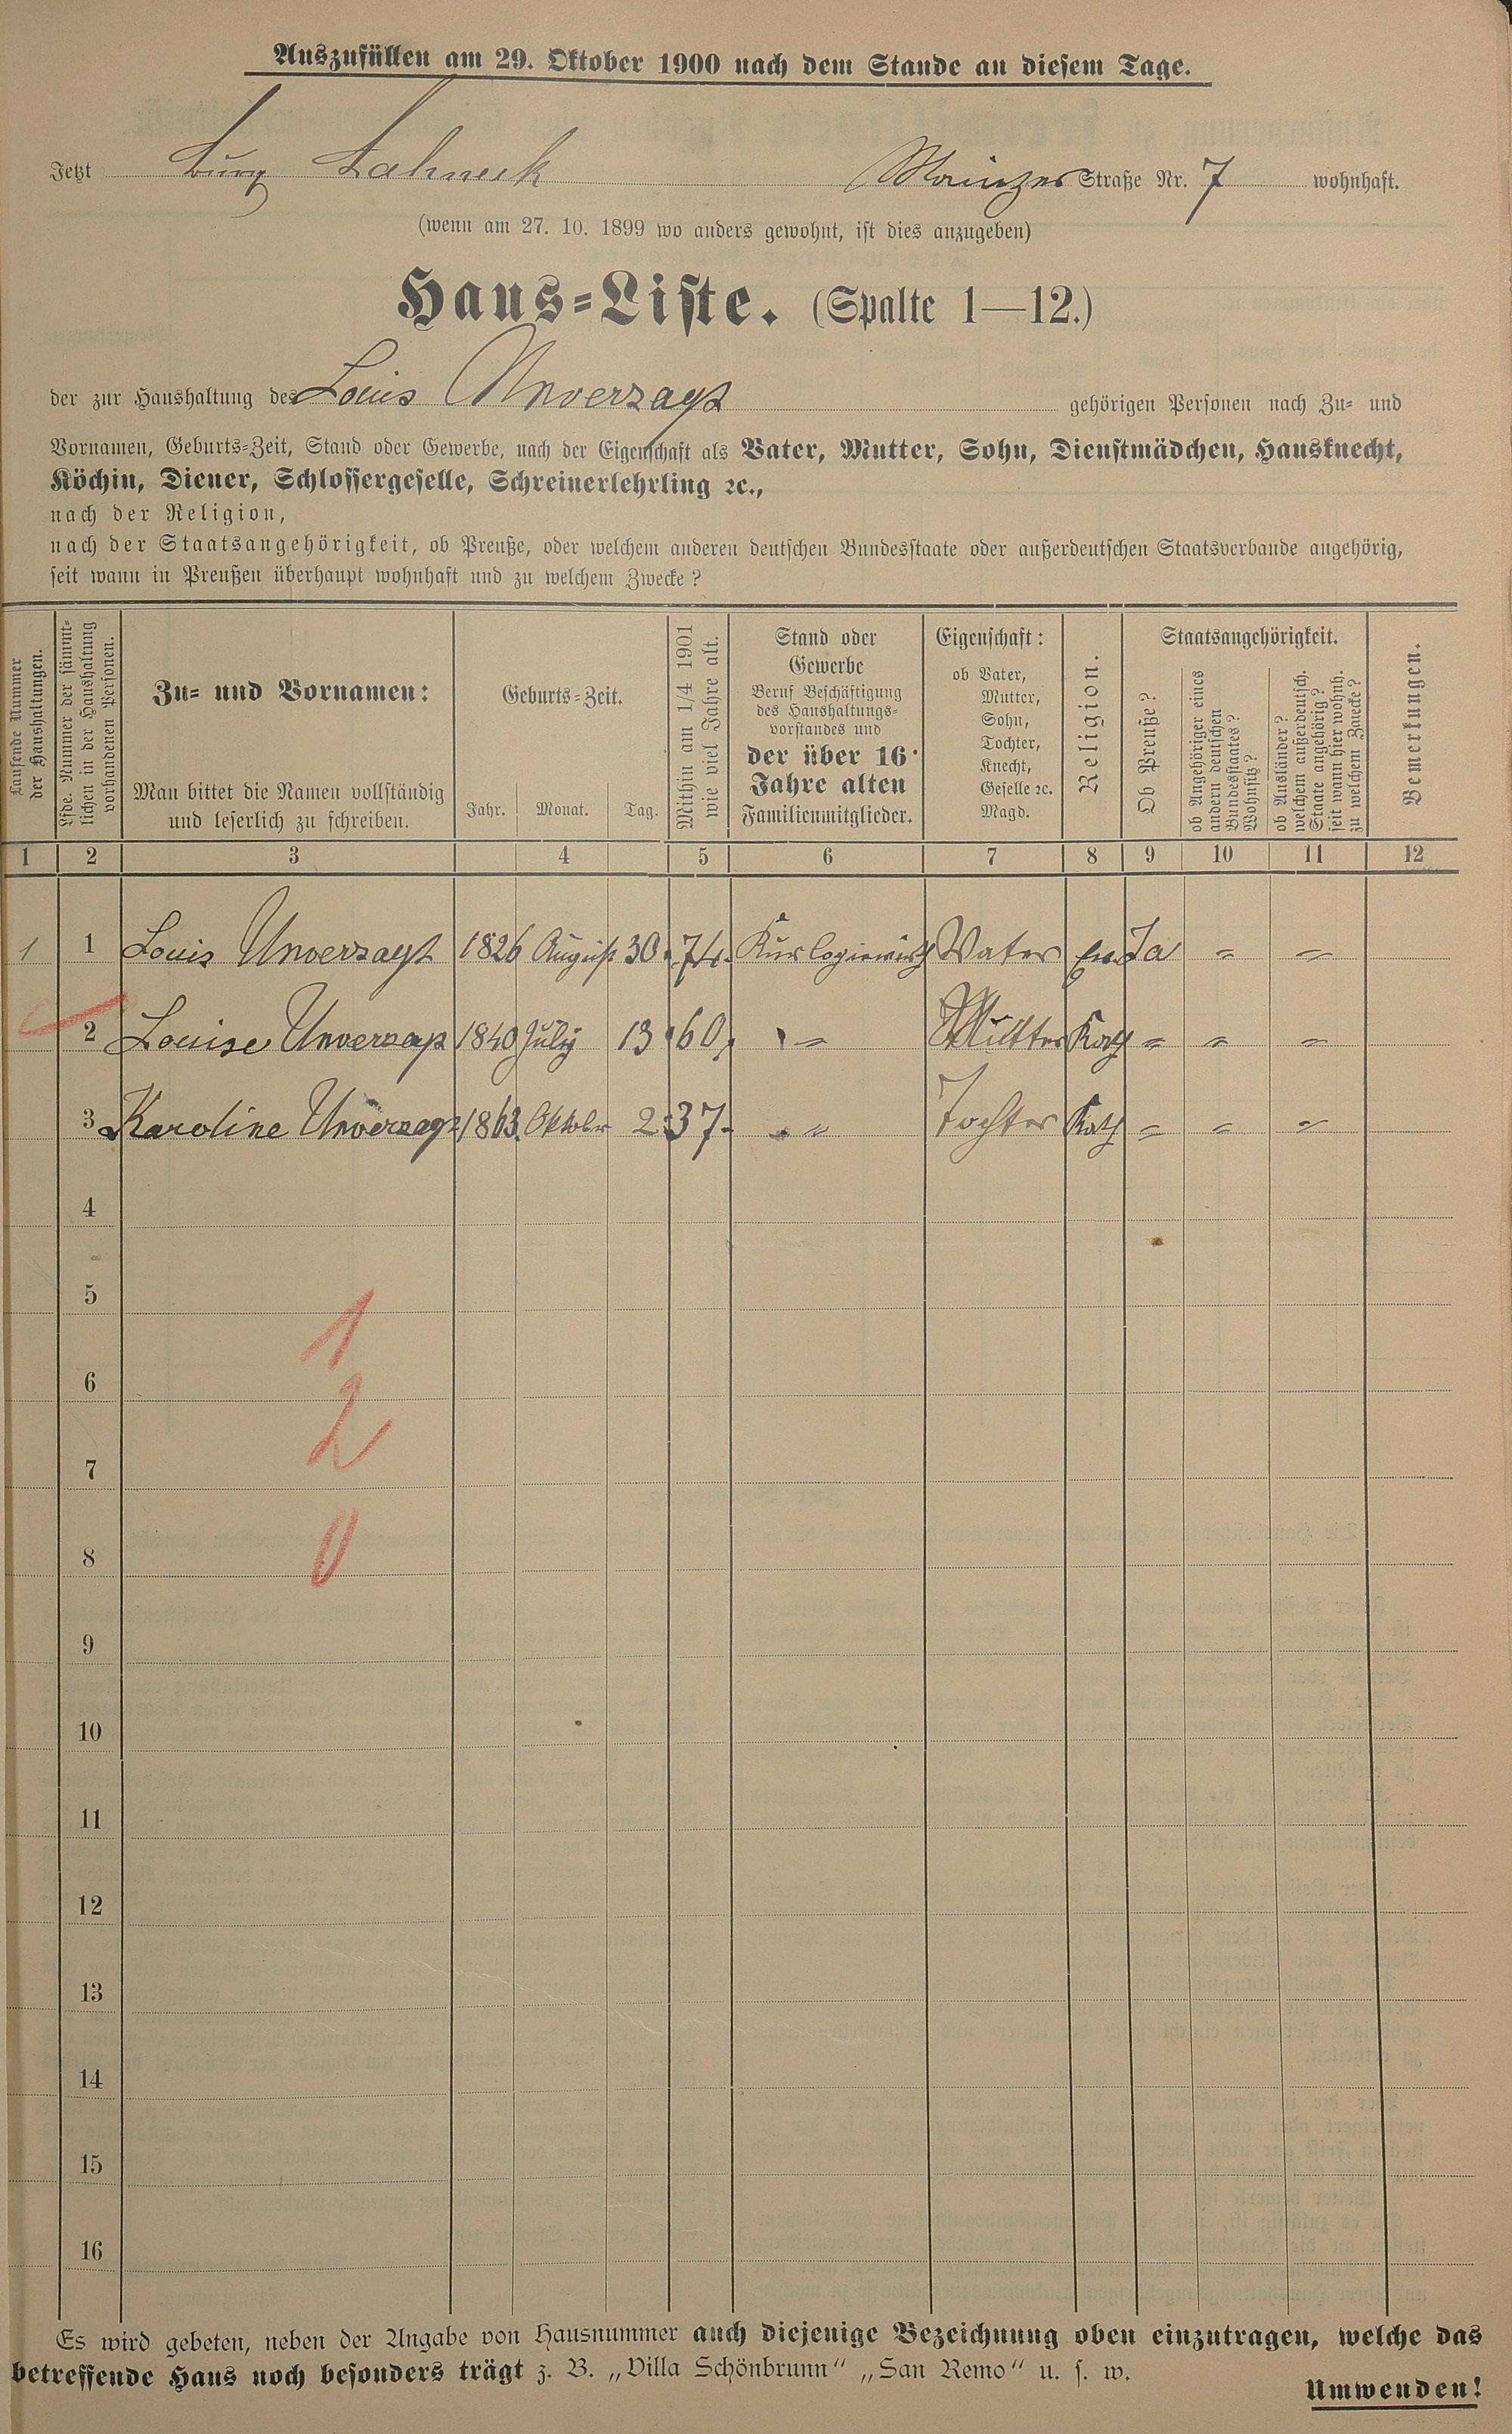 Auszufüllen am 29. Oktober 1900 nach dem Stande an diesem Tage.
Jetzt Burg Lahneck Mainzer Straße Nr. 7 wohnhaft.
(wenn am 27. 10. 1899 wo anders gewohnt, ist dies anzugeben)
Haus-Liste. (Spalte 1—12.)
der zur Haushaltung des Louis Unverzagt gehörigen Personen nach Zu- und
Vornamen, Geburts-Zeit, Stand oder Gewerbe, nach der Eigenschaft als Vater, Mutter, Sohn, Dienstmädchen, Hausknecht,
Köchin, Diener, Schlossergeselle, Schreinerlehrling ꝛc.,
nach der Religion,
nach der Staatsangehörigkeit, ob Preuße, oder welchem anderen deutschen Bundesstaate oder außerdeutschen Staatsverbande angehörig,
seit wann in Preußen überhaupt wohnhaft und zu welchem Zwecke?
Laufende Nummer
der Haushaltungen.
Lfde. Nummer der sämmt-
lichen in der Haushaltung
vorhandenen Personen.
Zu- und Vornamen:
Man bittet die Namen vollständig
und leserlich zu schreiben.
Geburts-Zeit.
Jahr. Monat. Tag.
Mithin am 1/4 1901
wie viel Jahre alt.
Stand oder
Gewerbe
Beruf Beschäftigung
des Haushaltungs-
vorstandes und
der über 16
Jahre alten
Familienmitglieder.
Eigenschaft:
ob Vater,
Mutter,
Sohn,
Tochter,
Knecht,
Geselle ꝛc.
Magd.
Religion.
Staatsangehörigkeit.
Ob Preuße?
ob Angehöriger eines
andern deutschen
Bundesstaates?
Wohnsitz?
ob Ausländer?
welchem außerdeutsch.
Staate angehörig?
seit wann hier wohnh.
zu welchem Zwecke?
Bemerkungen.
1 2 3 4 5 6 7 8 9 10 11 12
1 1 Louis Unverzagt 1826 August 30. 74. Kurlogiewirth Vater Ev. Ja " "
2 Louise Unverzagt 1840 July 13. 60. " Mutter Kath " " "
3 Karoline Unverzagt 1863 Oktober 2. 37. " Tochter Kath " " "
4
5
1
6
2
7
8
0
9
10
11
12
13
14
15
16
Es wird gebeten, neben der Angabe von Hausnummer auch diejenige Bezeichnung oben einzutragen, welche das
betreffende Haus noch besonders trägt z. B. „Villa Schönbrunn“ „San Remo“ u. s. w.
Umwenden!